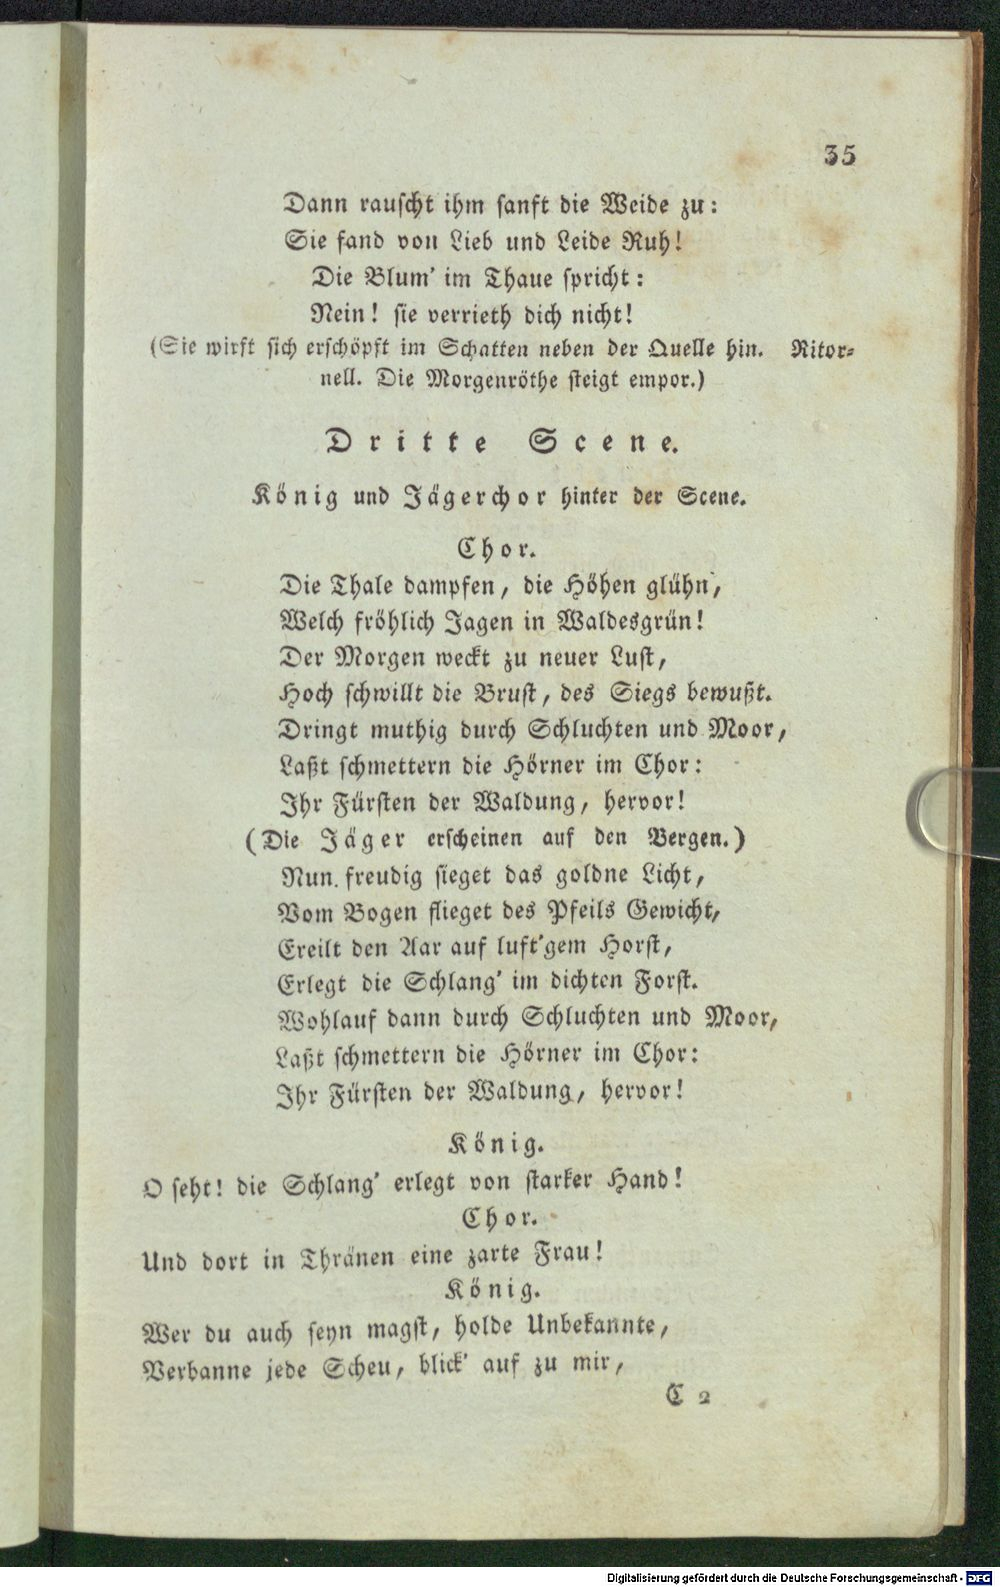 35
Dann rauscht ihm sanft die Weide zu:
Sie fand von Lieb und Leide Ruh!
Die Blum' im Thaue spricht:
Nein! sie verrieth dich nicht!
(Sie wirft sich erschöpft im Schatten neben der Quelle hin. Ritor-
nell. Die Morgenröthe steigt empor.)
Dritte Scene.
König und Jägerchor hinter der Scene.
Chor.
Die Thale dampfen, die Höhen glühn,
Welch fröhlich Jagen in Waldesgrün!
Der Morgen weckt zu neuer Lust,
Hoch schwillt die Brust, des Siegs bewußt.
Dringt muthig durch Schluchten und Moor,
Laßt schmettern die Hörner im Chor:
Ihr Fürsten der Waldung, hervor!
(Die Jäger erscheinen auf den Bergen.)
Nun freudig sieget das goldne Licht,
Vom Bogen flieget des Pfeils Gewicht,
Ereilt den Aar auf luft'gem Horst,
Erlegt die Schlang' im dichten Forst.
Wohlauf dann durch Schluchten und Moor,
Laßt schmettern die Hörner im Chor:
Ihr Fürsten der Waldung, hervor!
König.
O seht! die Schlang' erlegt von starker Hand!
Chor.
Und dort in Thränen eine zarte Frau!
König.
Wer du auch seyn magst, holde Unbekannte,
Verbanne jede Scheu, blick' auf zu mir,
C 2
Digitalisierung gefördert durch die Deutsche Forschungsgemeinschaft - DFG